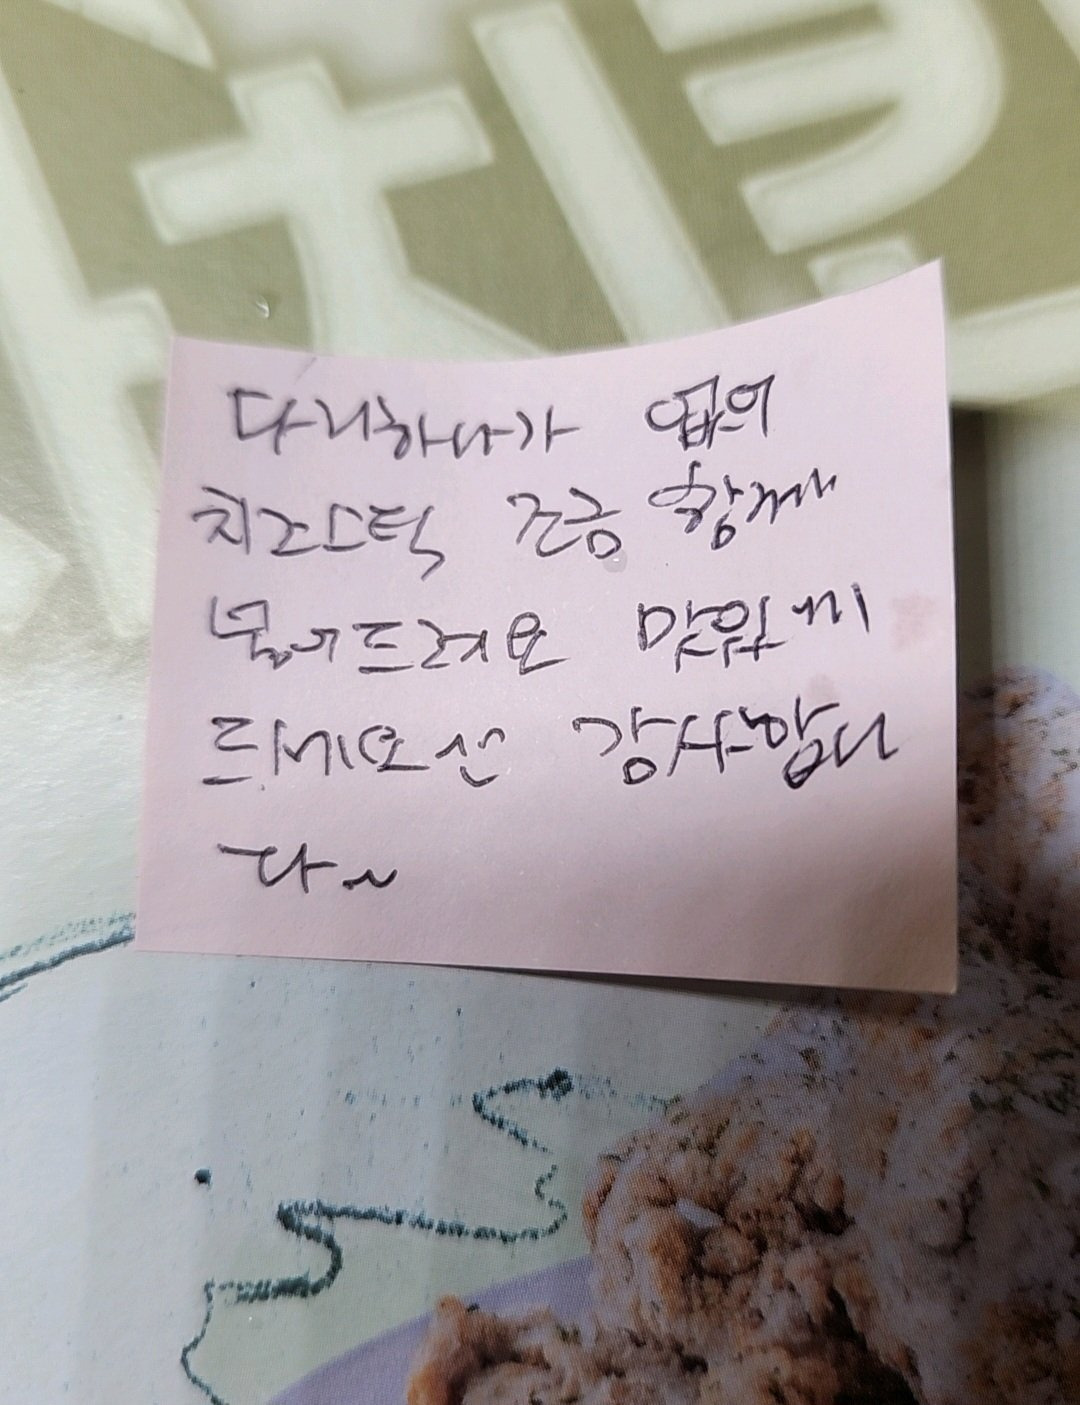 치킨
다리하나가 없의
치즈스틱 조금 함께
넣어드려요 맛있게
드세요 감사합니
다~